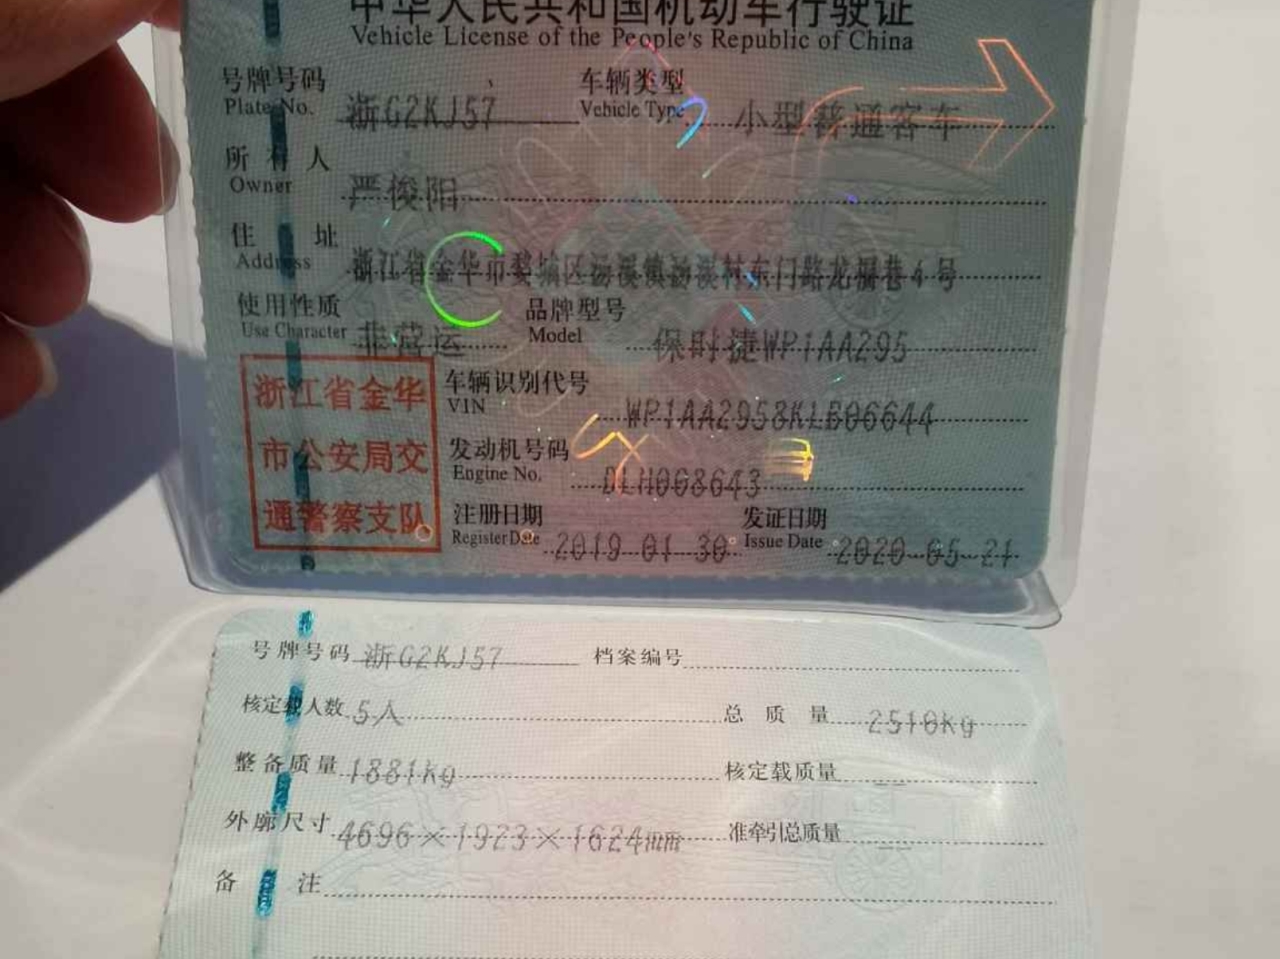 中华人民共和国机动车行驶证
Vehicle License of the People's Republic of China
号牌号码 浙G2KJ57 车辆类型 小型普通客车
Plate No. Vehicle Type
所有人 严俊阳
Owner
住址 浙江省金华市婺城区汤溪镇汤溪村东门路龙棚巷4号
Address
使用性质 非营运 品牌型号 保时捷WP1AA295
Use Character Model
浙江省金华
市公安局交
通警察支队
车辆识别代号
VIN WP1AA2958KLB06644
发动机号码
Engine No. DLH068643
注册日期 2019-01-30 发证日期 2020-05-21
Register Date Issue Date
号牌号码 浙G2KJ57 档案编号
核定载人数 5人 总质量 2510kg
整备质量 1881kg 核定载质量 --
外廓尺寸 4696×1923×1624mm 准牵引总质量 --
备注